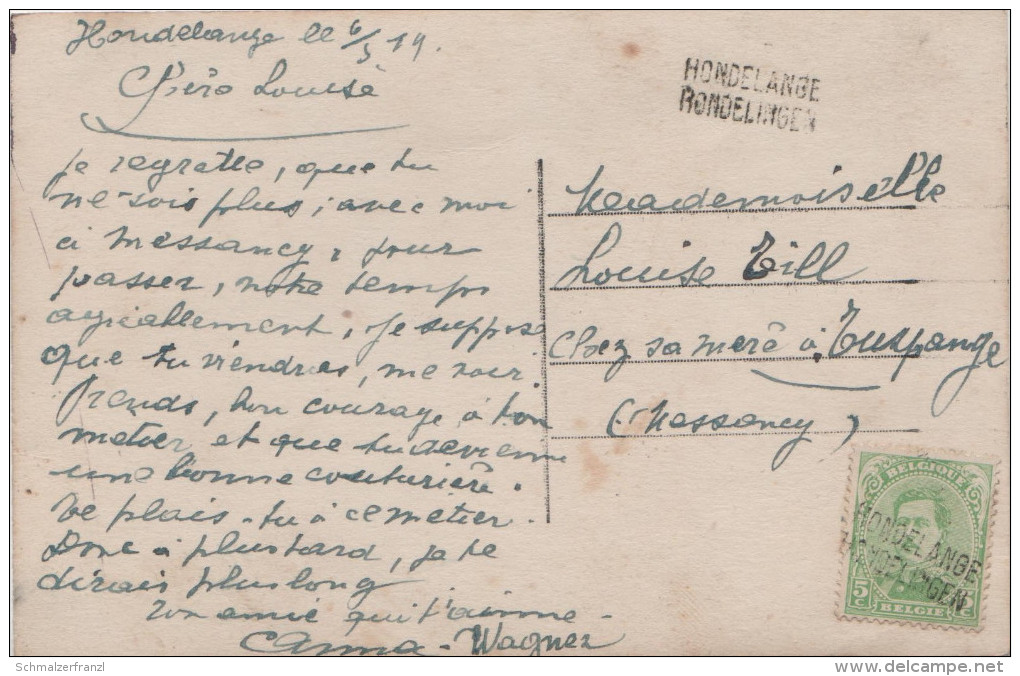 Hondelange le 6/5 19.
Chère Louise
je regratte, que tu
ne sois plus, avec moi
a messancy, pour
passer, notre temps
agréallement, Je suppose
que tu viendras, me voir.
Prends, bon courage à ton
metier et que tu devienne
une bonne couturière.
Te plais-tu à ce metier.
Donc à plus tard, je te
dirais plus long
ton amie qui t'aime.
Anna - Wagner
HONDELANGE
RONDELINGEN
Mademoiselle
Louise Till
Chez sa mère à Turpange
(Messancy)
BELGIQUE
HONDELANGE
RONDELINGEN
5c 5c
BELGIE
Schmalzerfranzl
delcampe.net